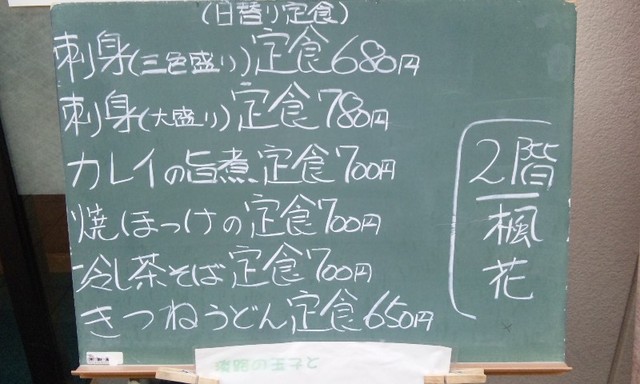 (日替り定食)
刺身(三色盛り)定食680円
刺身(大盛り)定食780円
カレイの旨煮定食700円
焼ほっけの定食700円
冷し茶そば定食700円
きつねうどん定食650円
2階
楓
花